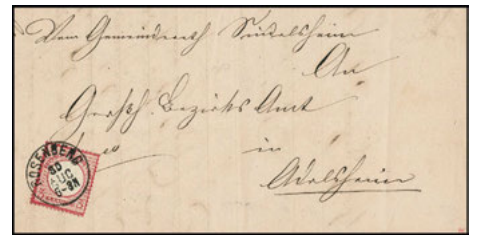 Vom Gemeinderath Sindolsheim
An
Großh. Bezirks Amt
in
Adelsheim
ROSENBERG
30
AUG
6-8N